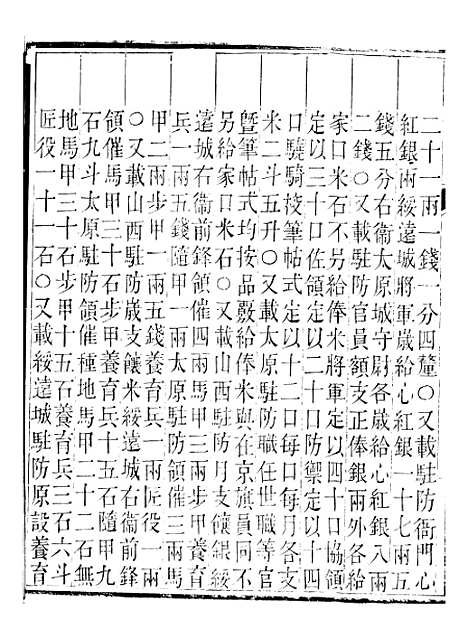 二十一兩一錢一分四釐○又載駐防衙門心
紅銀兩綏遠城將軍歲給心紅銀一十七兩五
錢五分右衛太原城守尉各歲給心紅銀八兩
二錢○又載駐防官員額支正俸銀兩外各給
家口米石不另給俸米將軍定以四十口協領
定以三十口佐領定以二十口防禦定以十四
口驍騎校筆帖式定以十二口每口每月各支
米二斗五升○又載太原駐防職任世職等官
曁筆帖式均按品級給俸米與在京旗員同不
另給家口米石○又載山西駐防月支饟銀綏
遠城右衛前鋒領催四兩馬甲三兩步甲養育
兵一兩五錢隨甲一兩太原駐防領催三兩馬
甲二兩步甲一兩五錢養育兵一兩匠役一兩
○又載山西駐防歲支饟米綏遠城右衛前鋒
領催馬甲三十石步甲養育兵十五石隨甲九
石九斗太原駐防領催種地馬甲二十二石無
地馬甲三十石步甲十五石養育兵三石六斗
匠役一十一石○又載綏遠城駐防原設養育